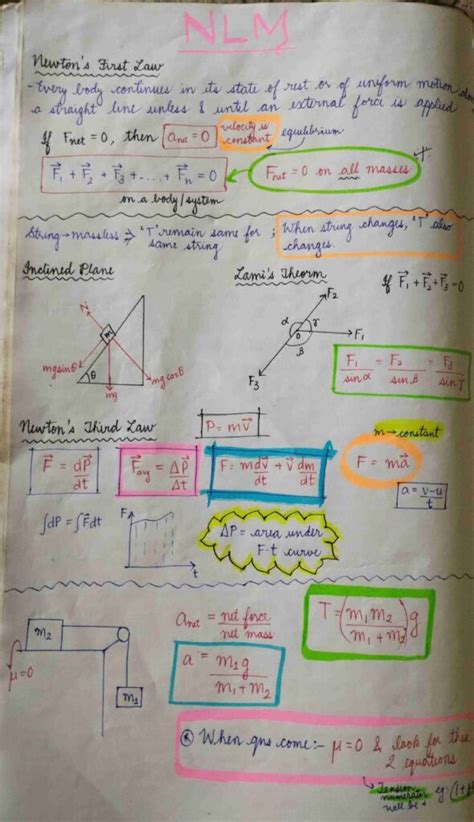 NLM
Newton's First Law
- Every body continues in its state of rest or of uniform motion
a straight line unless & until an external force is applied
If Fnet = 0, then anet = 0 velocity is constant equilibrium
F⃗₁ + F⃗₂ + F⃗₃ + .... + F⃗ₙ = 0
Fnet = 0 on all masses
on a body/system
String → massless ⇒ 'T' remain same for same string ; When string changes, 'T' also changes.
Inclined Plane
N
m
mg sinθ
θ
mg
mg cosθ
Lami's Theorm
If F⃗₁ + F⃗₂ + F⃗₃ = 0
F₂
α
γ
0
β
F₁
F₃
F₁/sinα = F₂/sinβ = F₃/sinγ
Newton's Third Law
P = mv⃗
m → constant
F⃗ = dP⃗/dt
F⃗av = ΔP⃗/Δt
F = mdv⃗/dt + v⃗ dm/dt
F = ma⃗
a = v-u/t
∫dP = ∫F⃗dt
F
t
ΔP = area under
F-t curve
m₂
μ=0
m₁
anet = net force/net mass
T = (m₁m₂/m₁+m₂)g
a = m₁g/m₁+m₂
When qns come:- μ=0 & look for these
2 equations
Tension
numerator
will be +
eg: (1+